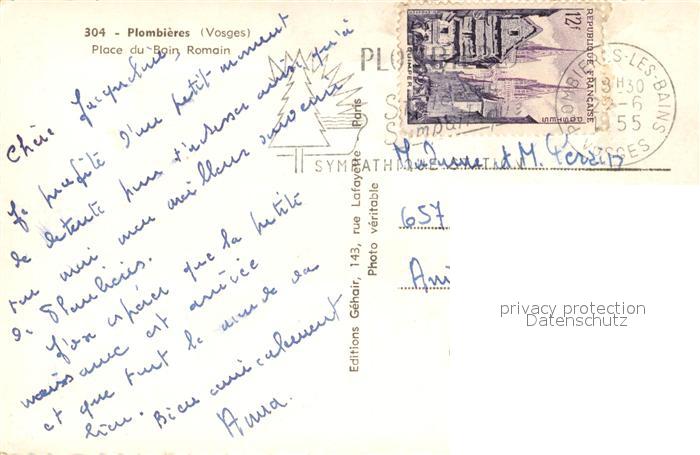 304 - Plombières (Vosges)
Place du Bain Romain
Chère Jacqueline,
Je profite d'un petit moment
de détente pour t'adresser ainsi qu'à
ton mari mon meilleur souvenir
de Plombières.
J'espère que la petite
naissance est arrivée
et que tout le monde va
bien. Bien amicalement
Anna.
Editions Géhair, 143, rue Lafayette - Paris
Photo véritable
PLOMB
SYMPATHIQUE STATION
12F
REPUBLIQUE FRANÇAISE
QUIMPER
POSTES
PLOMBIERES-LES-BAINS
H30
-6
55
VOSGES
Madame et M.
657
Ami
privacy protection
Datenschutz